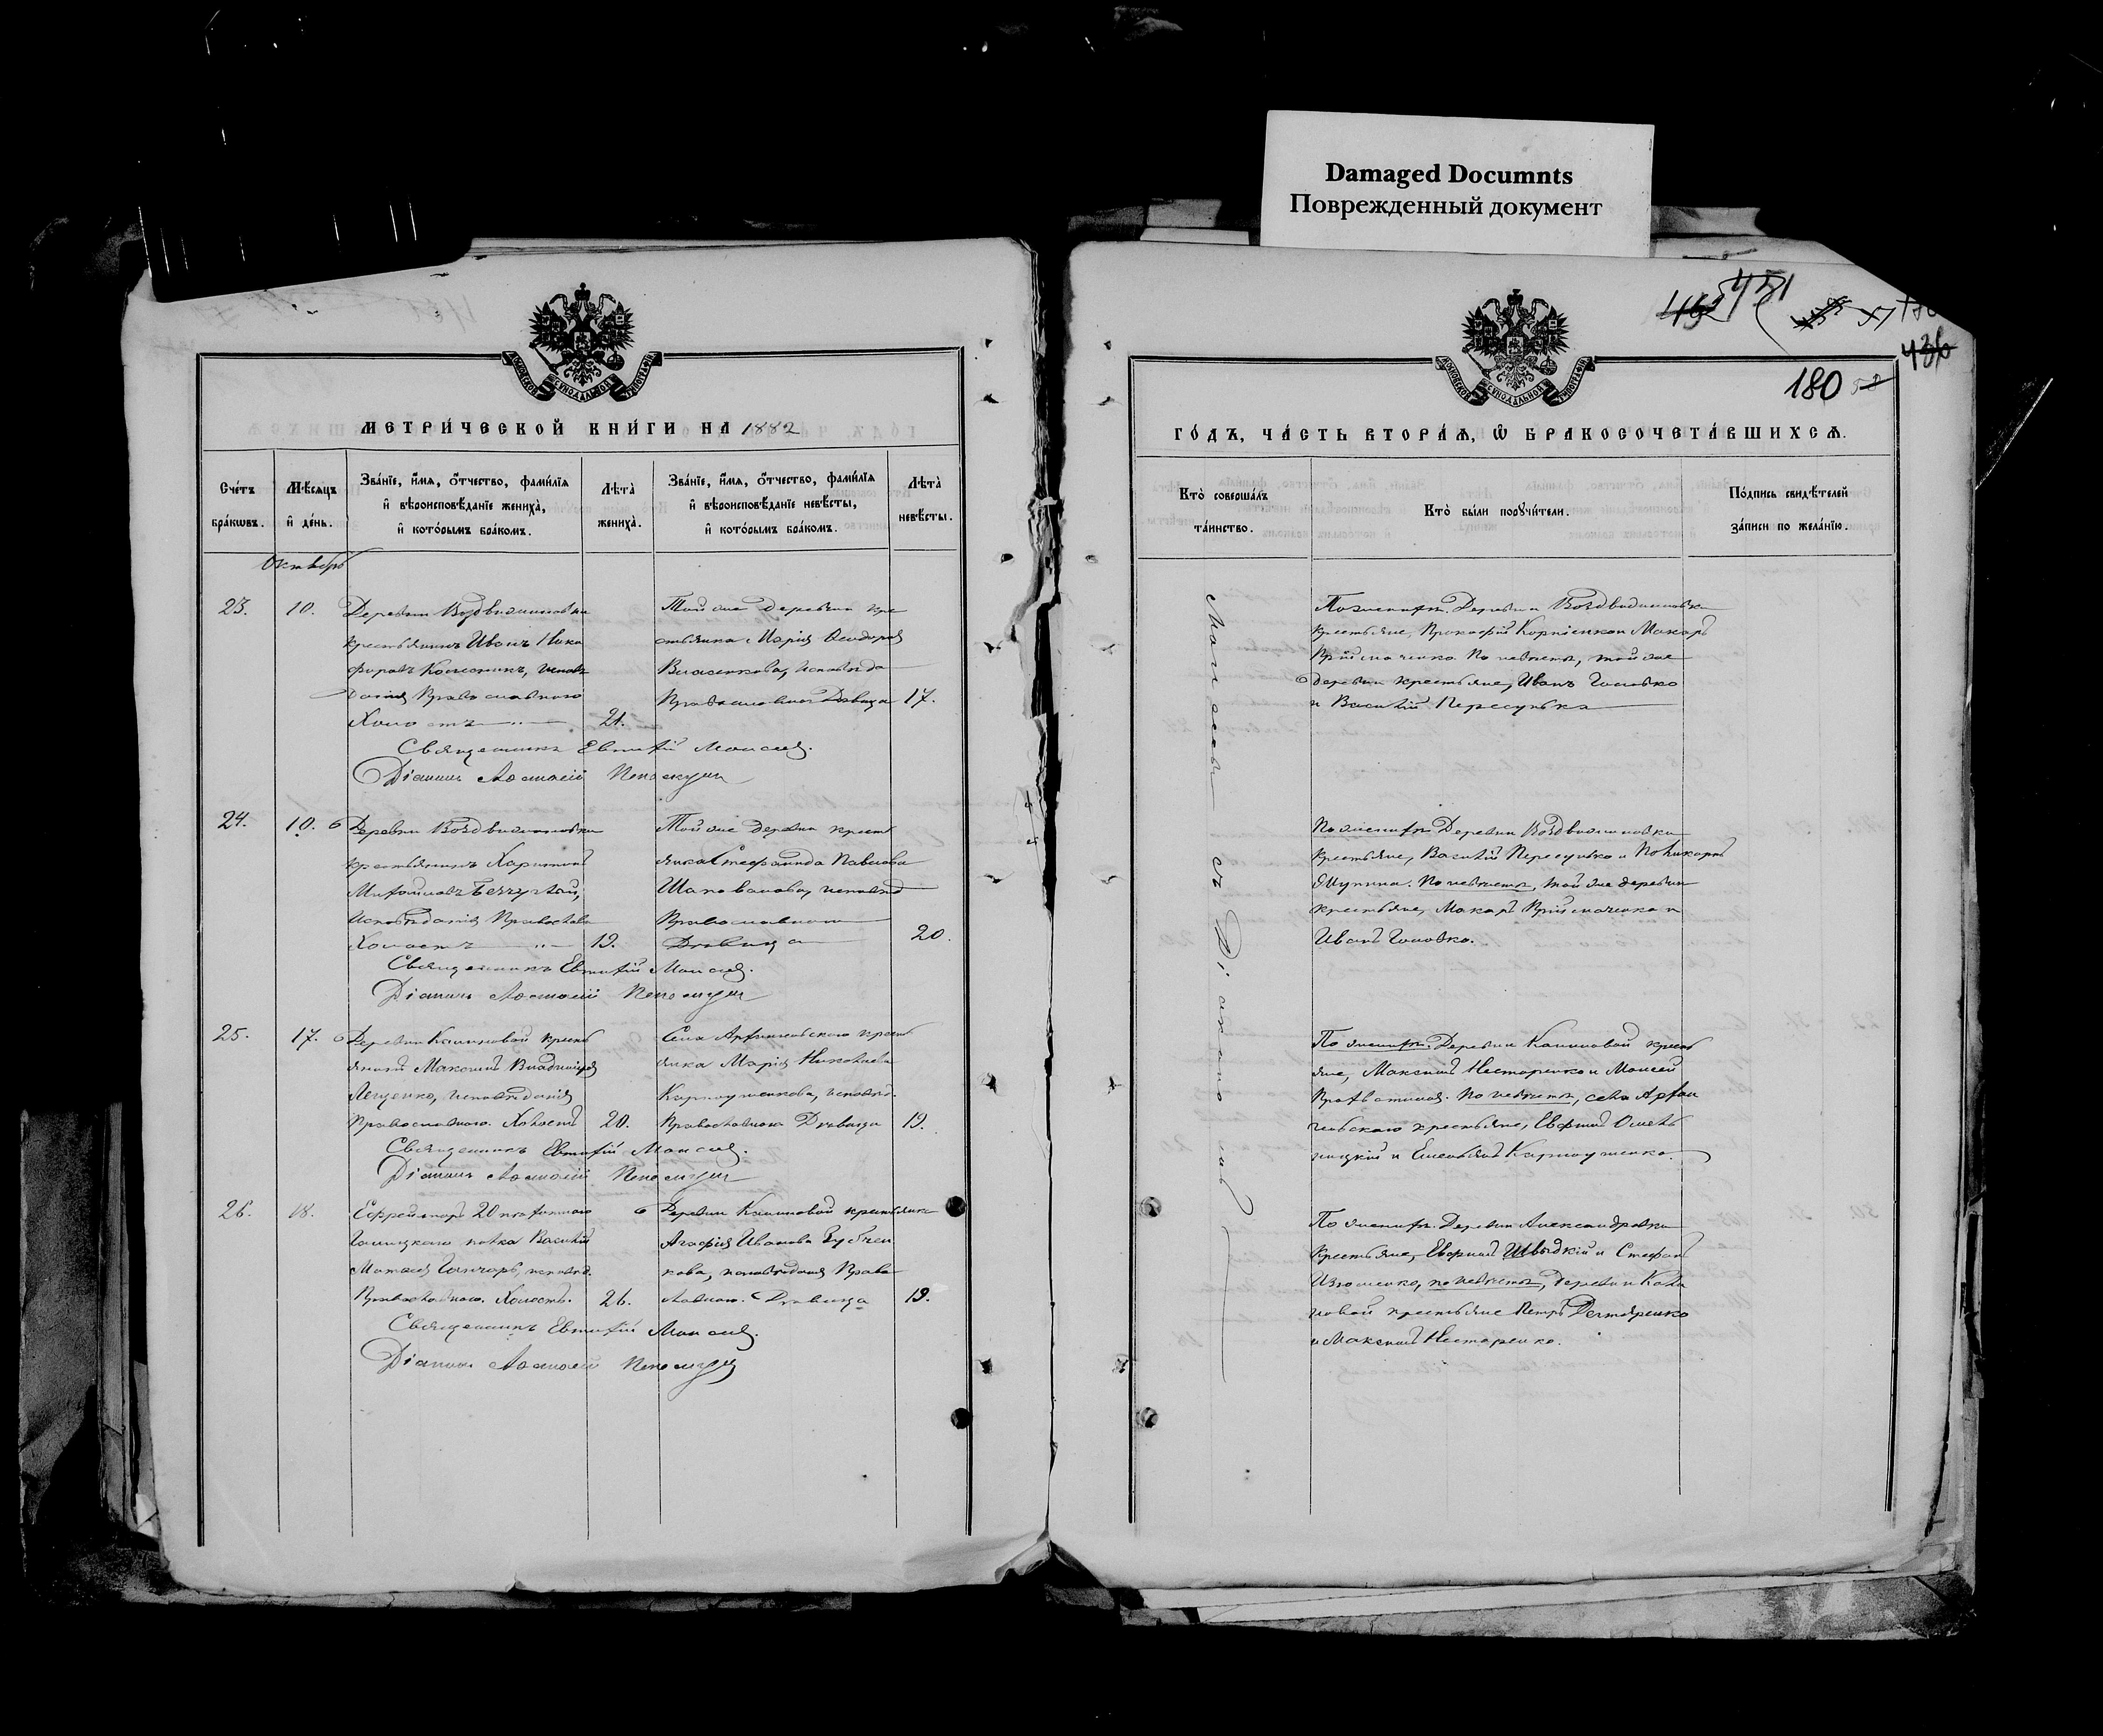 Damaged Documnts
Поврежденный документ
451
180
МОСКОВСКОЙ СѴНОДАЛЬНОЙ ТИПОГРАФІИ
МЕТРИ́ЧЕСКОЙ КНИ́ГИ НА 1882
Сче́тъ бра́кѡвъ.
Мѣ́сѧцъ и҆ де́нь.
Зва́нїе, и҆́мѧ, ѻ҆́тчество, фами́лїѧ и҆ вѣроисповѣ́данїе жениха̀, и҆ кото́рымъ бра́комъ.
Лѣта̀ жениха̀.
Зва́нїе, и҆́мѧ, ѻ҆́тчество, фами́лїѧ и҆ вѣроисповѣ́данїе невѣ́сты, и҆ кото́рымъ бра́комъ.
Лѣта̀ невѣ́сты.
Октябрь
23.
10.
Деревни Воздвиженовки
крестьянинъ Иванъ Ники
форовъ Колесникъ, исповѣ
данія Православного
Холостъ
21.
Той же деревни кре
стьянка Марія Ѳеодорова
Власенкова, исповѣда
Православного Дѣвица
17.
Священникъ Евтифій Моисеев.
Діаконъ
24.
10.
Деревни Воздвиженовки
крестьянинъ Харитонъ
Михайловъ
Исповѣданія Православн
Холостъ
19.
Той же деревни крест
янка Стефанида Павлова
Шаповалова, исповѣд
Православного
Дѣвица
20.
Священникъ Евтифій Моисеев.
Діаконъ
25.
17.
Деревни Калиновой крест
янинъ Максимъ Владиміров
Лещенко, исповѣданія
Православного. Холостъ
20.
Села крест
янка Марія Николаева
исповѣд.
Православного Дѣвица
19.
Священникъ Евтифій Моисеев.
Діаконъ
26.
18.
Ефрейторъ 20 пѣхотного
Галицкаго полка Василій
Гончаръ, исповѣд.
Православного. Холостъ.
26.
Деревни Калиновой крестьянка
Агафія Иванова Бубчен
кова, исповѣданія Право
славного. Дѣвица
19.
Священникъ Евтифій Моисеев.
Діаконъ
МОСКОВСКОЙ СѴНОДАЛЬНОЙ ТИПОГРАФІИ
ГО́ДЪ, ЧА́СТЬ ВТОРА́Ѧ, Ѡ҆ БРАКОСОЧЕТА́ВШИХСѦ.
Кто̀ соверша́лъ та́инство.
Кто̀ бы́ли порꙋчи́тели.
По́дпись свидѣ́телей за́писи по жела́нїю.
Моисеевъ съ Діакономъ
По женихѣ. Деревни Воздвиженовки
крестьяне, Прокофій Корніенко и Макаръ
Пріймаченко. По невѣстѣ, той же
деревни крестьяне, Иванъ Головко
и Василій Пересунько
По женихѣ Деревни Воздвиженовки
крестьяне, Василій Пересунько и Поликарпъ
По невѣстѣ, той же деревни
крестьяне, Макаръ Пріймаченко и
Иванъ Головко.
По женихѣ. Деревни Калиновой крест
яне, Максимъ Нестеренко и Моисей
По невѣстѣ, села
крестьяне, Ефимъ
и Емельянъ
По женихѣ. Деревни Александровки
крестьяне, Ефимъ Швыдкій и Стефанъ
по невѣстѣ, деревни Кали
новой крестьяне Петръ Дегтяренко
и Максимъ Нестеренко.